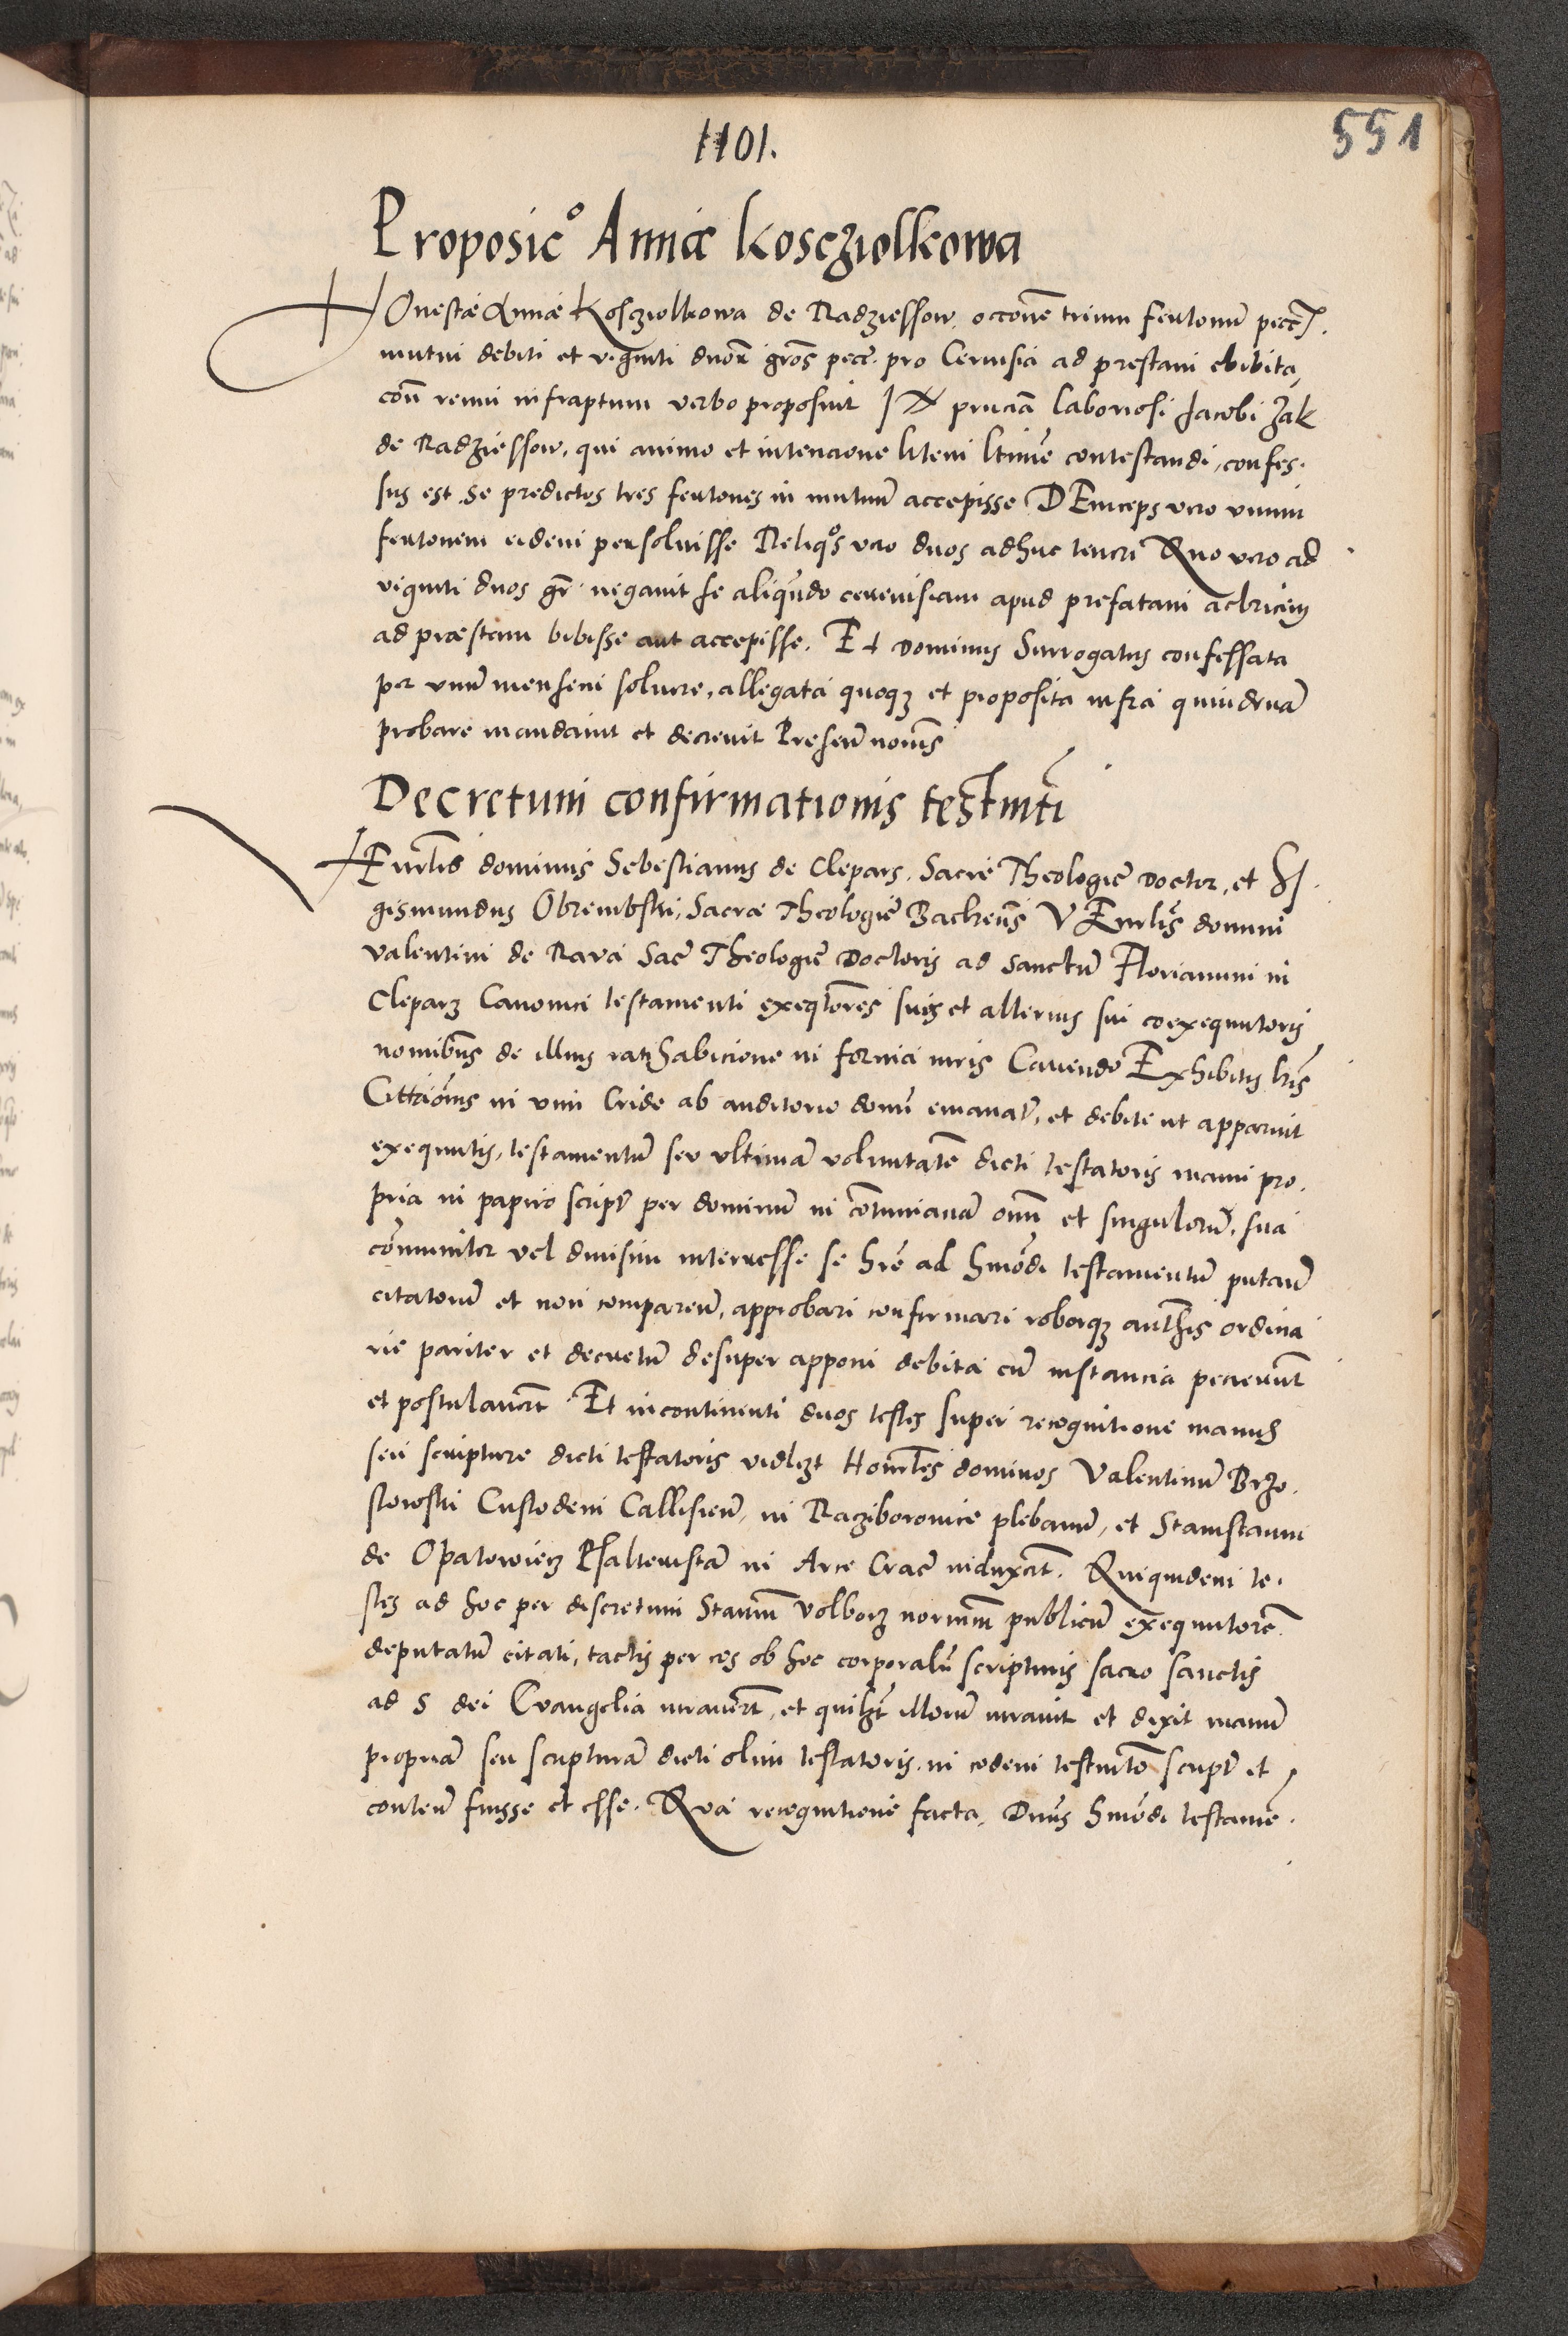 1101.
551
Proposicº Annæ Kosczıolkowa
HOnestæ Annæ Kosczıolkowa de Radziessow, occōne trium fertonū pecc.
mutui debiti et viginti duoꝝ gros pecc. pro Ceruisia ad prestam ebibita,
con reum infraptum verbo proposuit IN pnciā laboriosi Jacobi Zak
de Radziessow, qui animo et intencione litem ltimē contestandi, confes.
sus est se predictos tres fertones in mutuū accepisse DEinceps vero vnum
fertonem eidem persoluisse Reliqos vero duos adhuc teneri Quo vero ad
viginti duos gr̄ negauit se aliqūdo ceruisiam apud prefatam actricem
ad præstam bibisse aut accepisse. Et Dominus Surrogatus confessata
per vnū mensem soluere, allegata quoqꝫ et proposita infra quindenā
probare mandauit et decreuit Presen̄ noıs
Decretum confirmationis testmti
VEnrlis dominus Sebestianus de Clepars. Sacre Theologiē Doctor, et Si.
gismundus Obrembski, Sacræ Theologiē Bachrus VEnrlis domini
Valentini de Rava Sacē Theologiē Doctoris ad Sanctū Florianum in
Cleparz Canonici testamenti exeqtores suis et alterius sui coexequutoris
nomibus de illius ratihabicione in forma iuris Cauendo Exhibitis lris
Cittāonis in vim Cride ab auditorio domī emanat, et debite ut apparuit
exequutis, testamentū seu vltimā voluntatē dicti testatoris manu pro.
pria in papiro script̄ per dominū in cōtumaciam oım̄ et singulorū, sua
cōmuniter vel diuisim interresse se hrē ad hmōdi testamentū putaū
citatorū et non compareū, approbari confirmari roborqꝫ authis ordina
rie pariter et decretū desuper apponi debita cū instancia pecierunt
et postularunt. Et incontinenti duos testes super recognitione manus
seu scripture dicti testatoris vidlizt Honrles dominos Valentinū Brzo.
stowski Custodem Callisieū, in Raciborowice plebanū, et Stanislaum
de Opatowiecz Psalteristā in Arce Cracē induxert. Quiquidem te.
stes ad hoc per discretum Stanım Volborz noriuım publicū exequutorē
deputatū citati, tactis per eos ob hoc corporalr̄ scripturis sacro sanctis
ad S dei Evangelia iurauert, et quilizt illorū iurauit et dixit manū
propriā seu scripturā dicti olim testatoris in eodem testmto script̄ et
conteū fuisse et esse. Qua recognitione facta, Dnus hmōdi testamē.